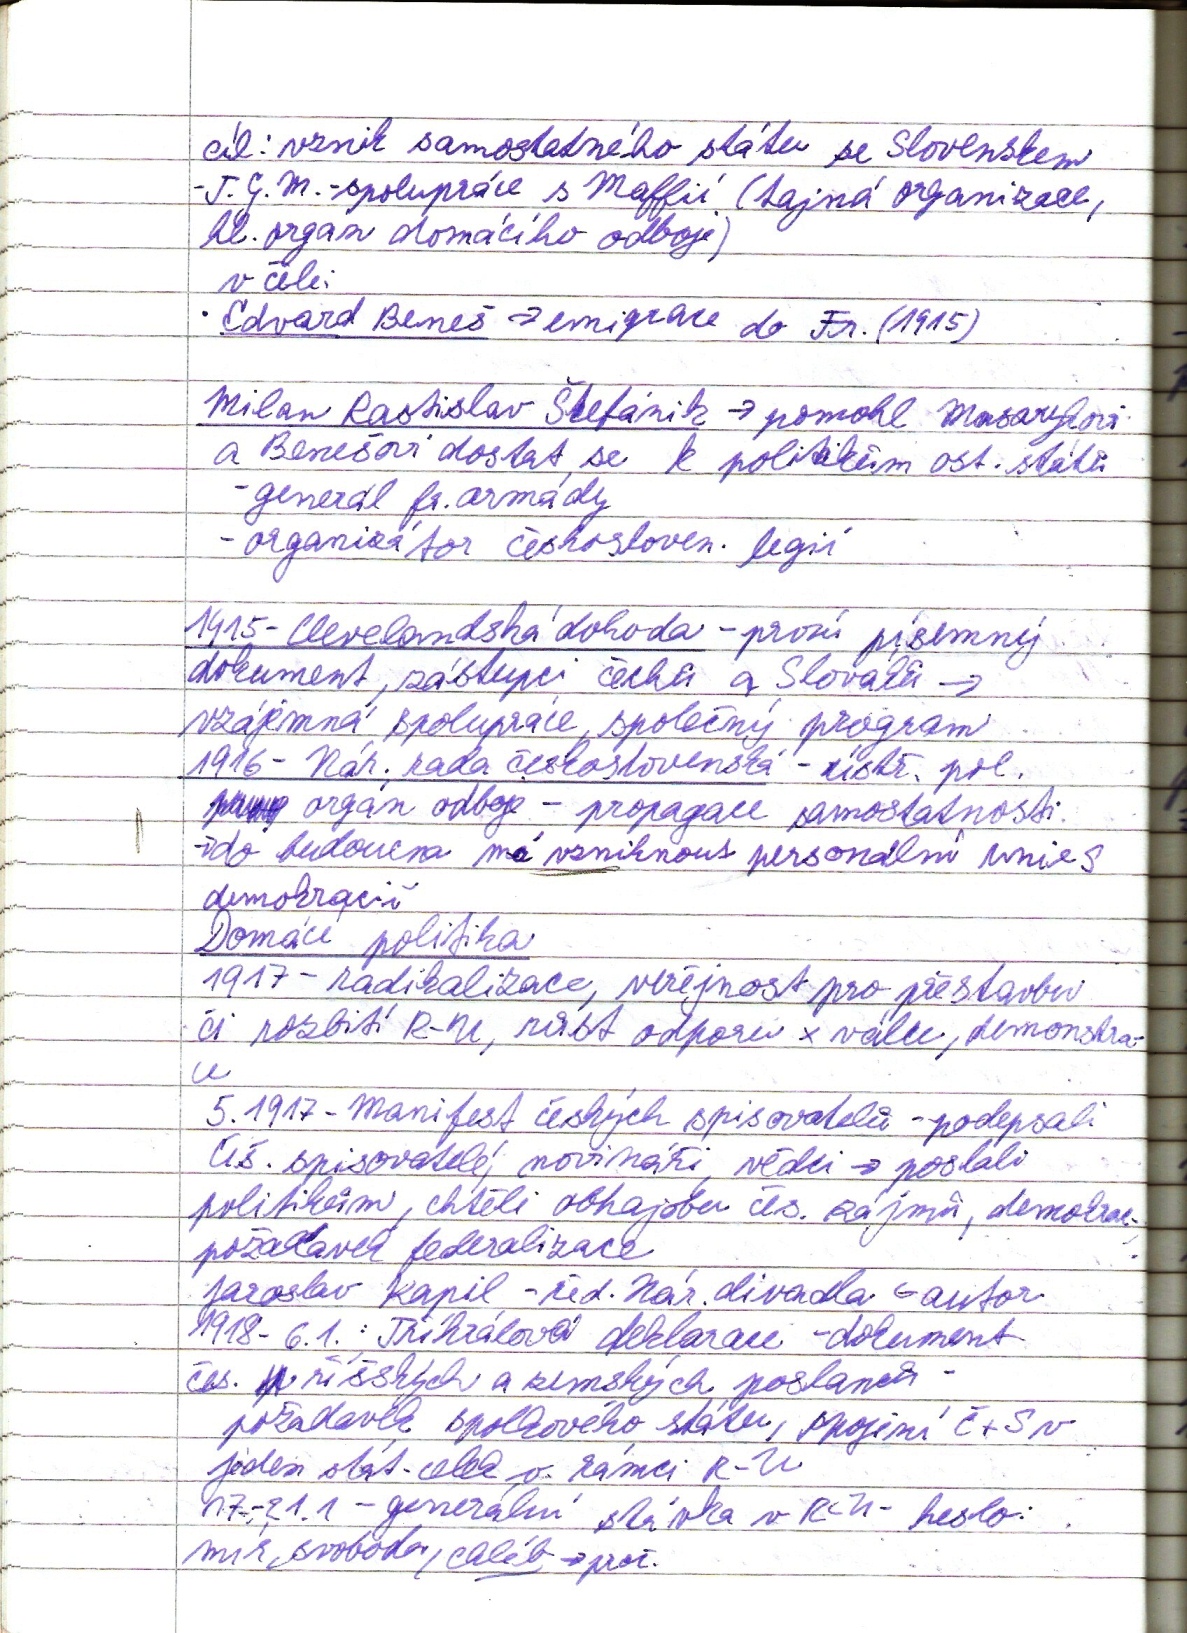 cíl: vznik samostatného státu se Slovenskem
-T.G.M.-spolupráce s Maffií (tajná organizace,
hl. orgán domácího odboje)
v čele:
• Edvard Beneš → emigrace do Fr. (1915)
Milan Rastislav Štefánik → pomohl Masarykovi
a Benešovi dostat se k politikům ost. států
- generál fr. armády
- organizátor českosloven. legií
1915- Clevelandská dohoda - první písemný
dokument, zástupci čechů a Slováků →
vzájemná spolupráce, společný program
1916- Nár. rada československá - ústř. pol.
orgán odboje - propagace samostatnosti
do budoucna má vzniknout personální unie s
demokracií
Domácí politika
1917 - radikalizace, veřejnost pro přestavbu
či rozbití R-U, růst odporu x válce, demonstra-
ce
5.1917- Manifest českých spisovatelů - podepsali
čes. spisovatelé, novináři, vědci → poslali
politikům, chtěli obhajobu čes. zájmů, demokrac.,
požadavek federalizace
Jaroslav Kapil - řed. Nár. divadla ← autor
1918- 6.1.: Tříkrálová deklarace - dokument
čes. říšských a zemských poslanců -
požadavek spolkového státu, spojení Č+S v
jeden stát. celek v rámci R-U
17.-21.1 - generální stávka v R-U- heslo:
mír, svoboda, chléb →